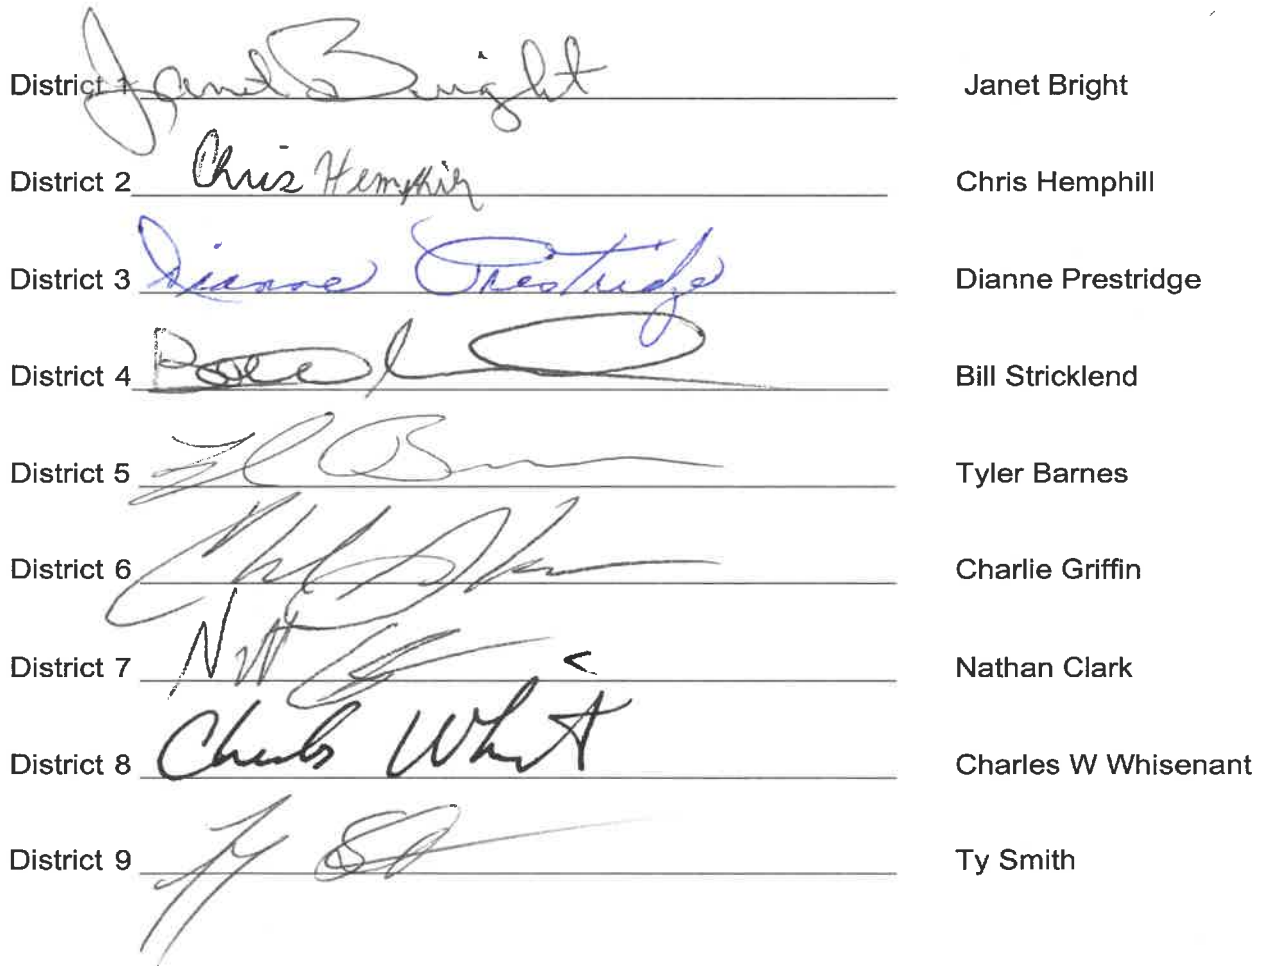 District 1 Janet Bright Janet Bright
District 2 Chris Hemphill Chris Hemphill
District 3 Dianne Prestridge Dianne Prestridge
District 4 Bill Stricklend
District 5 Tyler Barnes
District 6 Charlie Griffin
District 7 Nathan Clark
District 8 Charles Charles W Whisenant
District 9 Ty Ty Smith